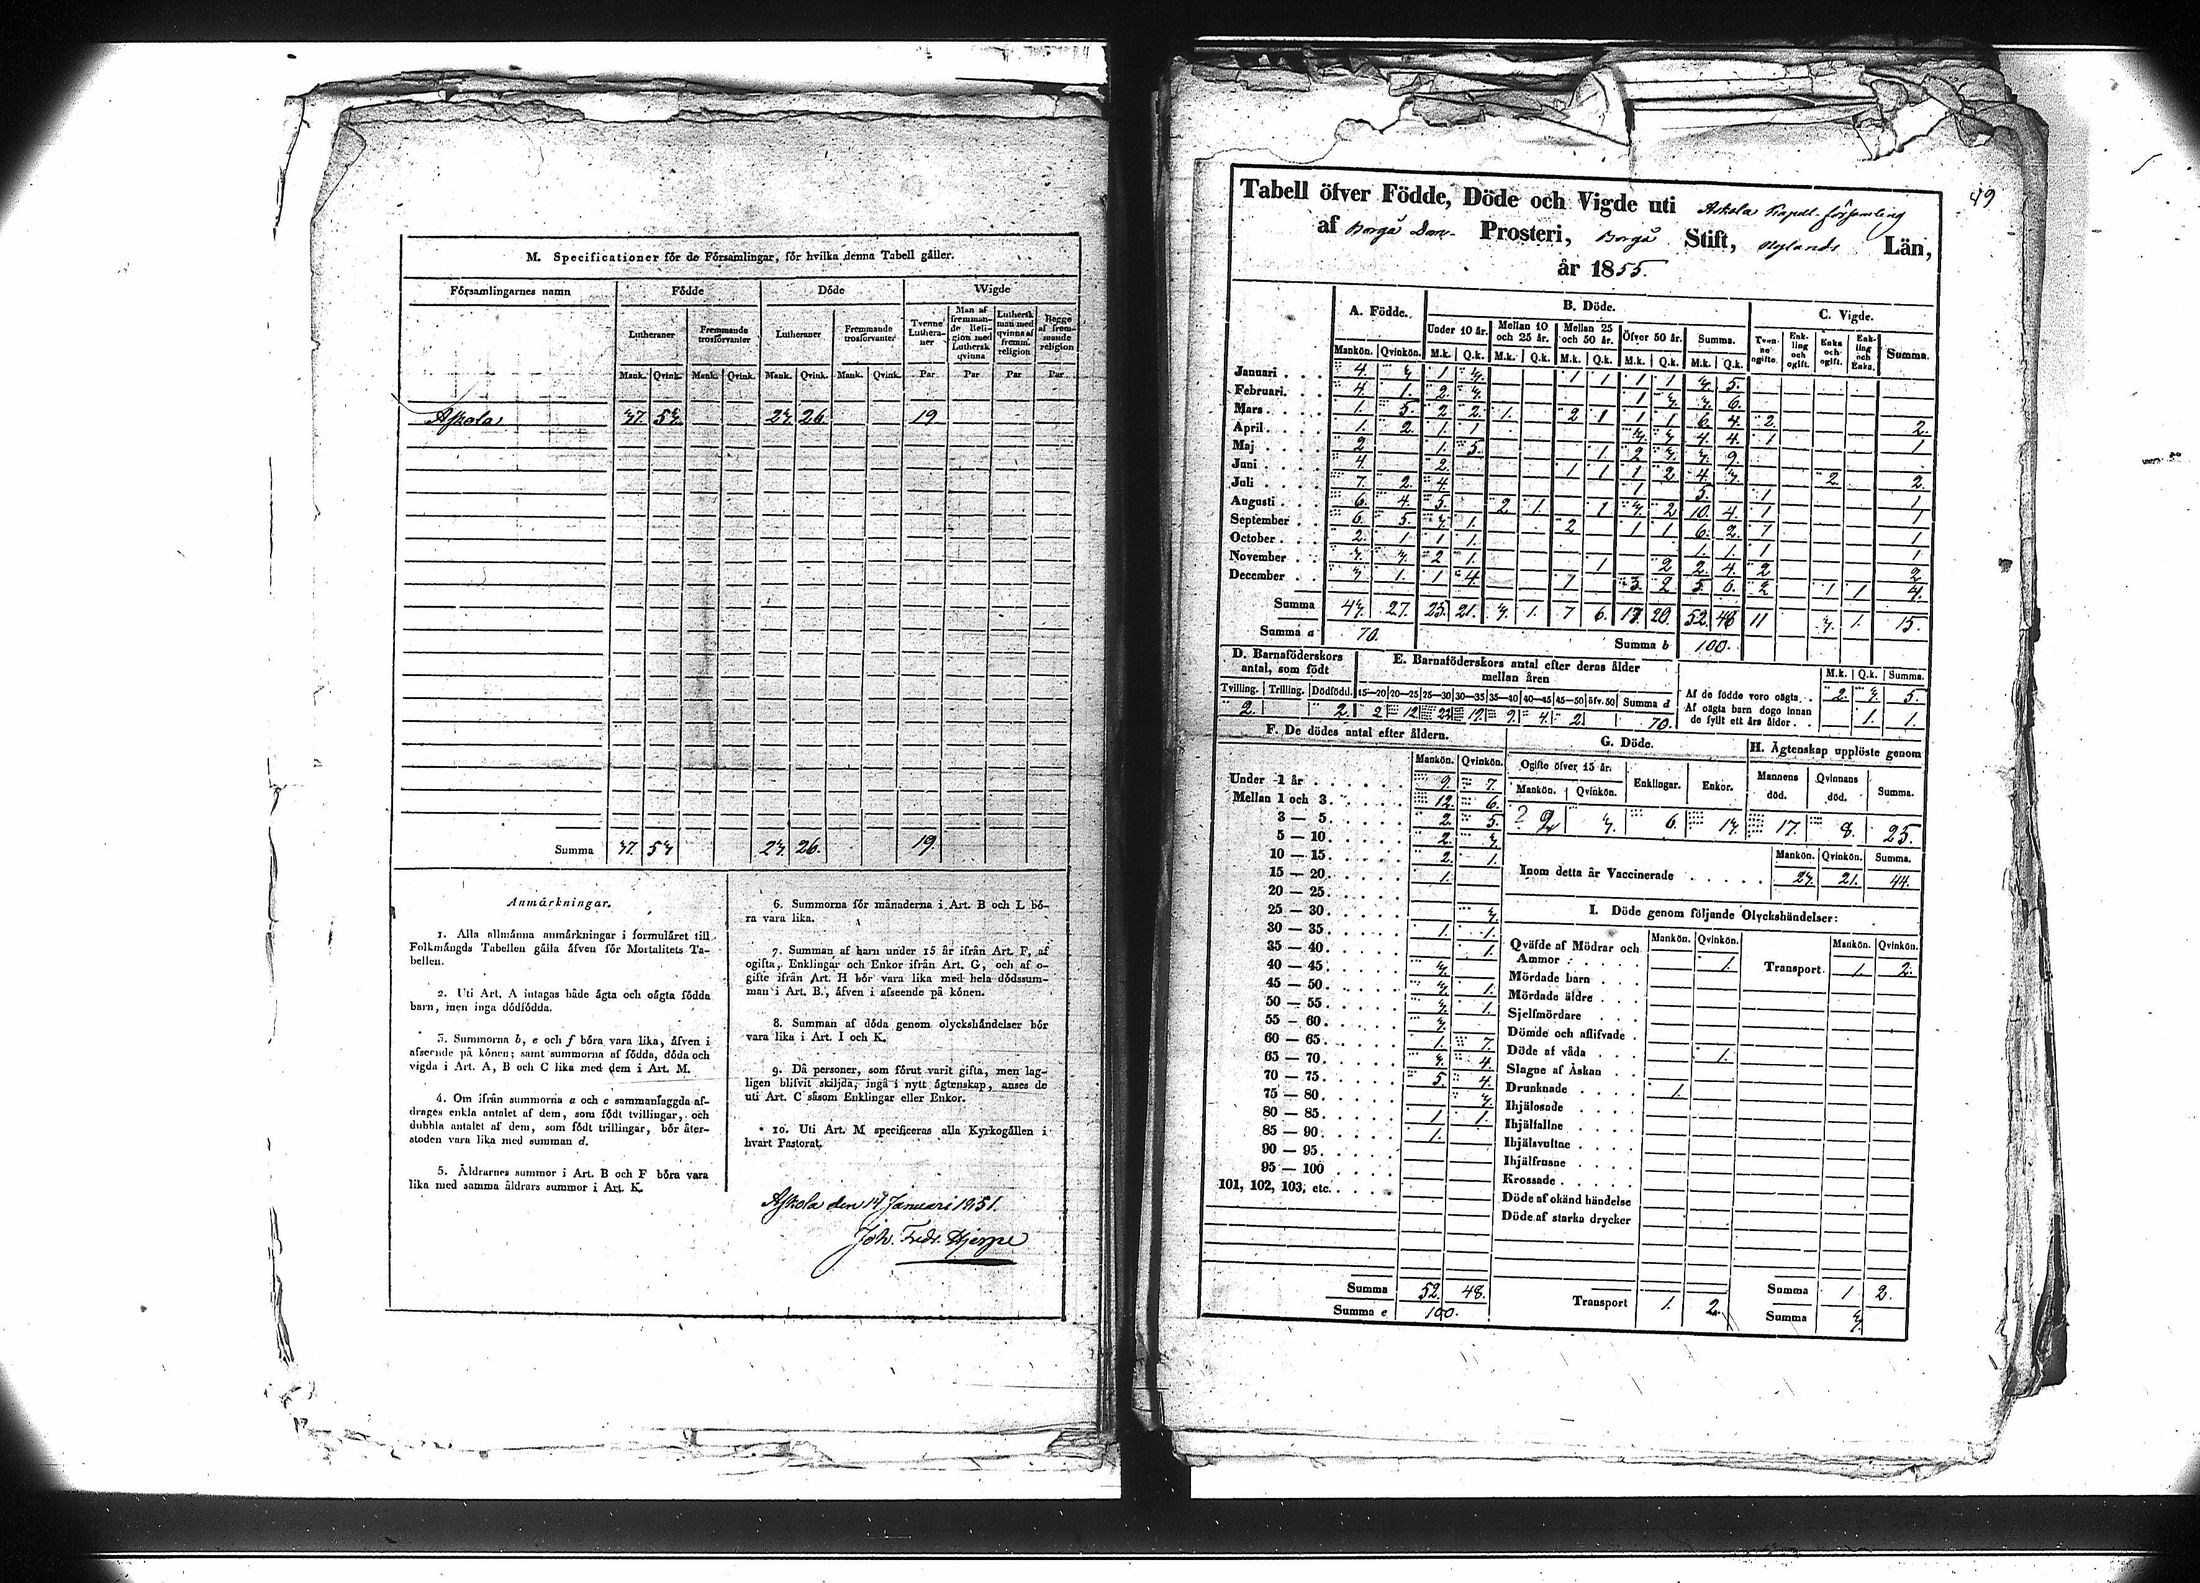 M. Specificationer för de Församlingar, för hvilka denna Tabell gäller.
Församlingarnes namn Födde Döde Wigde
Lutheraner Fremmande trosförvanter Lutheraner Fremmande trosförvanter Tvenne Lutheraner Man af fremmande Religion med Luthersk qvinna Luthersk man med qvinna af fremm. religion Begge af fremmande religion
Mank. Qvink. Mank. Qvink. Mank. Qvink. Mank. Qvink. Par Par Par Par
Askola 37. 53. 23. 26. 19
Summa 37. 53 23. 26. 19.
Anmärkningar.
1. Alla allmänna anmärkningar i formuläret till
Folkmängds Tabellen gälla äfven för Mortalitets Ta-
bellen.
2. Uti Art. A intagas både ägta och oägta födda
barn, men inga dödfödda.
3. Summorna b, e och f böra vara lika, äfven i
afseende på könen; samt summorna af födda, döda och
vigda i Art. A, B och C lika med dem i Art. M.
4. Om ifrån summorna a och c sammanlaggda af-
drages enkla antalet af dem, som födt tvillingar, och
dubbla antalet af dem, som födt trillingar, bör åter-
stoden vara lika med summan d.
5. Äldrarnes summor i Art. B och F böra vara
lika med samma äldrars summor i Art. K.
6. Summorna för månaderna i Art. B och L bö-
ra vara lika.
7. Summan af barn under 15 år ifrån Art. F, af
ogifta, Enklingar och Enkor ifrån Art. G, och af o-
gifte ifrån Art. H bör vara lika med hela dödssum-
man i Art. B., äfven i afseende på könen.
8. Summan af döda genom olyckshändelser bör
vara lika i Art. I och K.
9. Då personer, som förut varit gifta, men lag-
ligen blifvit skiljda, ingå i nytt ägtenskap, anses de
uti Art. C såsom Enklingar eller Enkor.
10. Uti Art. M specificeras alla Kyrkogällen i
hvart Pastorat.
Askola den 14 Januari 1851.
Joh. Fredr. Hjerpe
49
Tabell öfver Födde, Döde och Vigde uti Askola Kapell-församling
af Borgå Dom- Prosteri, Borgå Stift, Nylands Län,
år 1855.
A. Födde. B. Döde. C. Vigde.
Under 10 år. Mellan 10 och 25 år. Mellan 25 och 50 år. Öfver 50 år. Summa. Tvenne ogifte. Enkling och ogift. Enka och ogift. Enkling och Enka. Summa.
Mankön. Qvinkön. M.k. Q.k. M.k. Q.k. M.k. Q.k. M.k. Q.k. M.k. Q.k.
Januari 4. 3 1 3. 1 1 1 1 3. 5.
Februari. 4. 1. 2. 3. 1 3. 3. 6.
Mars 1. 5. 2 2. 1. 2 1 1 1 6. 4. 2. 2.
April 1. 2. 1. 1 3. 3 4 4. 1 1
Maj 2 1. 5. 1 2 3. 3. 9.
Juni 4. 2. 1 1 1 2 4. 3. 2. 2.
Juli 7. 2. 4. 1 5. 1 1
Augusti 6. 4. 5. 2 1. 1 3. 2 10. 4. 1 1
September 6. 5. 3. 1. 2 1 1 6. 2. 1 1
October 2. 1. 1 1. 1. 1. 1 1
November 3. 3. 2 1. 1 2 2. 4. 2 2
December 3 1. 1 4. 1 3. 2 5. 6. 2 1 1 4.
Summa 43. 27. 25. 21. 3. 1. 7 6. 17. 20. 52. 48 11 3. 1. 15.
Summa a 70. Summa b 100.
D. Barnaföderskors antal, som födt
E. Barnaföderskors antal efter deras ålder mellan åren
M.k. Q.k. Summa.
Tvilling. Trilling. Dödfödd. 15—20 20—25 25—30 30—35 35—40 40—45 45—50 öfv. 50 Summa d
2. 2. 2 12 22 19. 9. 4. 2. 70.
Af de födde voro oägta 2. 3. 5.
Af oägta barn dogo innan
de fyllt ett års ålder 1. 1.
F. De dödes antal efter åldern.
Mankön. Qvinkön.
Under 1 år 9. 7.
Mellan 1 och 3 12. 6.
3 — 5 2. 5.
5 — 10 2. 3.
10 — 15 2. 1.
15 — 20 1.
20 — 25
25 — 30 3.
30 — 35 1. 1.
35 — 40 1.
40 — 45 3.
45 — 50 3. 1.
50 — 55 3. 1.
55 — 60 3.
60 — 65 1. 7.
65 — 70 3. 4.
70 — 75 5. 4.
75 — 80 3.
80 — 85 1 1.
85 — 90 1.
90 — 95
95 — 100
101, 102, 103, etc.
Summa 52. 48.
Summa e 100.
G. Döde. H. Ägtenskap upplöste genom
Ogifte öfver 15 år. Enklingar. Enkor. Mannens död. Qvinnans död. Summa.
Mankön. Qvinkön.
2 3. 6. 13. 17. 8. 25.
Mankön. Qvinkön. Summa.
Inom detta år Vaccinerade 23. 21. 44.
I. Döde genom följande Olyckshändelser:
Mankön. Qvinkön. Mankön. Qvinkön.
Qväfde af Mödrar och
Ammor 1. Transport 1. 2.
Mördade barn
Mördade äldre
Sjelfmördare
Dömde och aflifvade
Döde af våda 1.
Slagne af Åskan
Drunknade 1.
Ihjälosade
Ihjälfallne
Ihjälsvultne
Ihjälfrusne
Krossade
Döde af okänd händelse
Döde af starka drycker
Transport 1. 2.
Summa 1 2.
Summa 3.